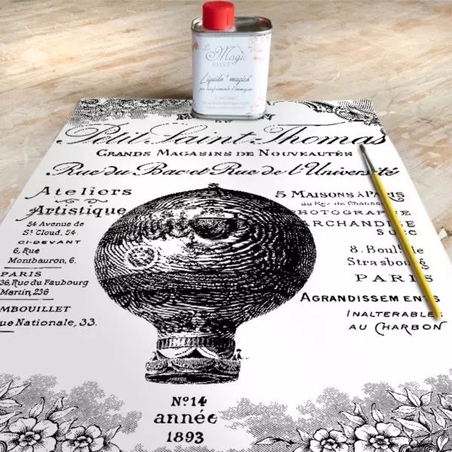 Magic
Paper
Liquide "magico"
per trasferimento d'immagini
Petit Saint Thomas
GRANDS MAGASINS DE NOUVEAUTÉS
Rue du Bac et Rue de l'Université
Ateliers
Artistique
54 Avenue de
St Cloud, 54.
CI-DEVANT
6, Rue
Montbauron, 6.
PARIS
236, Rue du Faubourg
Martin, 236
RAMBOUILLET
Rue Nationale, 33.
5 MAISONS À PARIS
au Rez de Chaussée
PHOTOGRAPHE
MARCHANDISE
8. Boule
Strasbourg
PARIS
AGRANDISSEMENTS
INALTERABLES
AU CHARBON
Nº14
année
1893